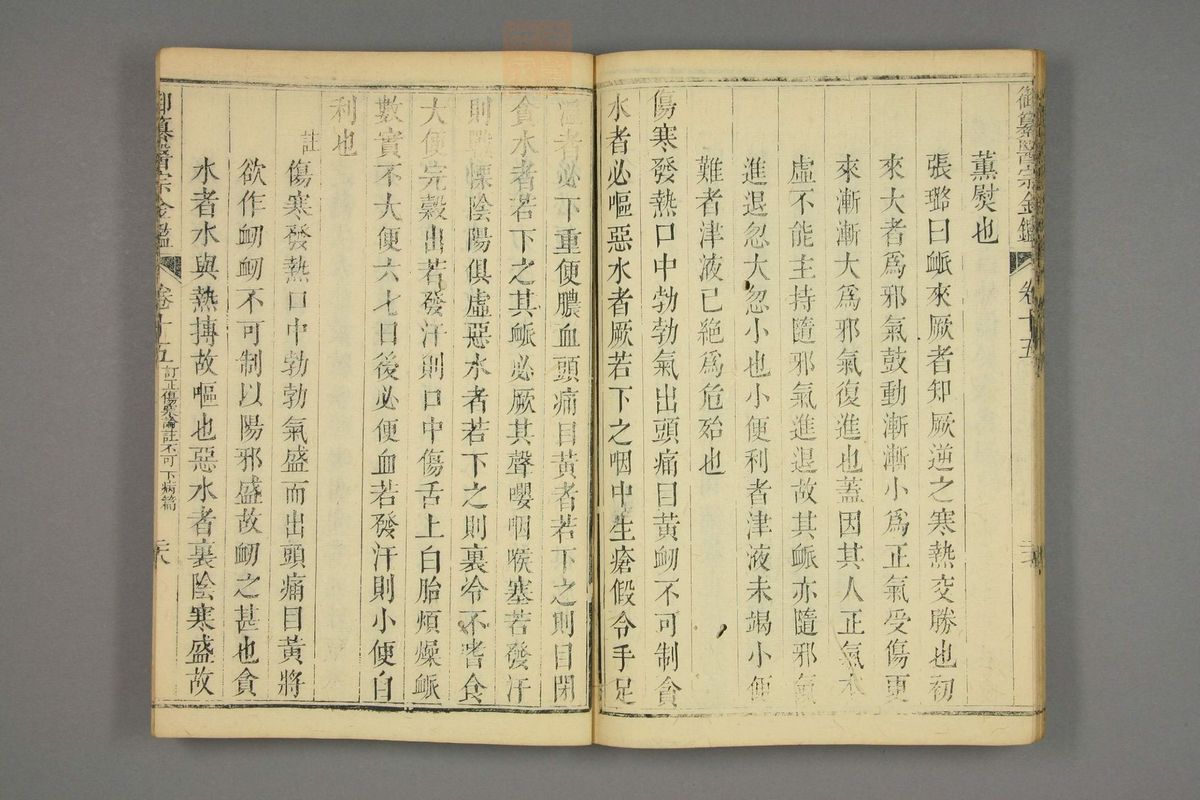 御纂醫宗金鑑 卷十五
薰熨也
張璐曰衇來厥者知厥逆之寒熱交勝也初
來大者爲邪氣鼓動漸漸小爲正氣受傷更
來漸漸大爲邪氣復進也蓋因其人正氣本
虛不能主持隨邪氣進退故其衇亦隨邪氣
進退忽大忽小也小便利者津液未竭小便
難者津液已絕爲危殆也
傷寒發熱口中勃勃氣出頭痛目黃衂不可制貪
水者必嘔惡水者厥若下之咽中生瘡假令手足
溫者必下重便膿血頭痛目黃者若下之則目閉
貪水者若下之其衇必厥其聲嚶咽喉塞若發汗
則戰慄陰陽俱虛惡水者若下之則裏冷不嗜食
大便完穀出若發汗則口中傷舌上白胎煩燥衇
數實不大便六七日後必便血若發汗則小便自
利也
註 傷寒發熱口中勃勃氣盛而出頭痛目黃將
欲作衂衂不可制以陽邪盛故衂之甚也貪
水者水與熱摶故嘔也惡水者裏陰寒盛故
御纂醫宗金鑑 卷十五 訂正傷寒論註不可下病篇